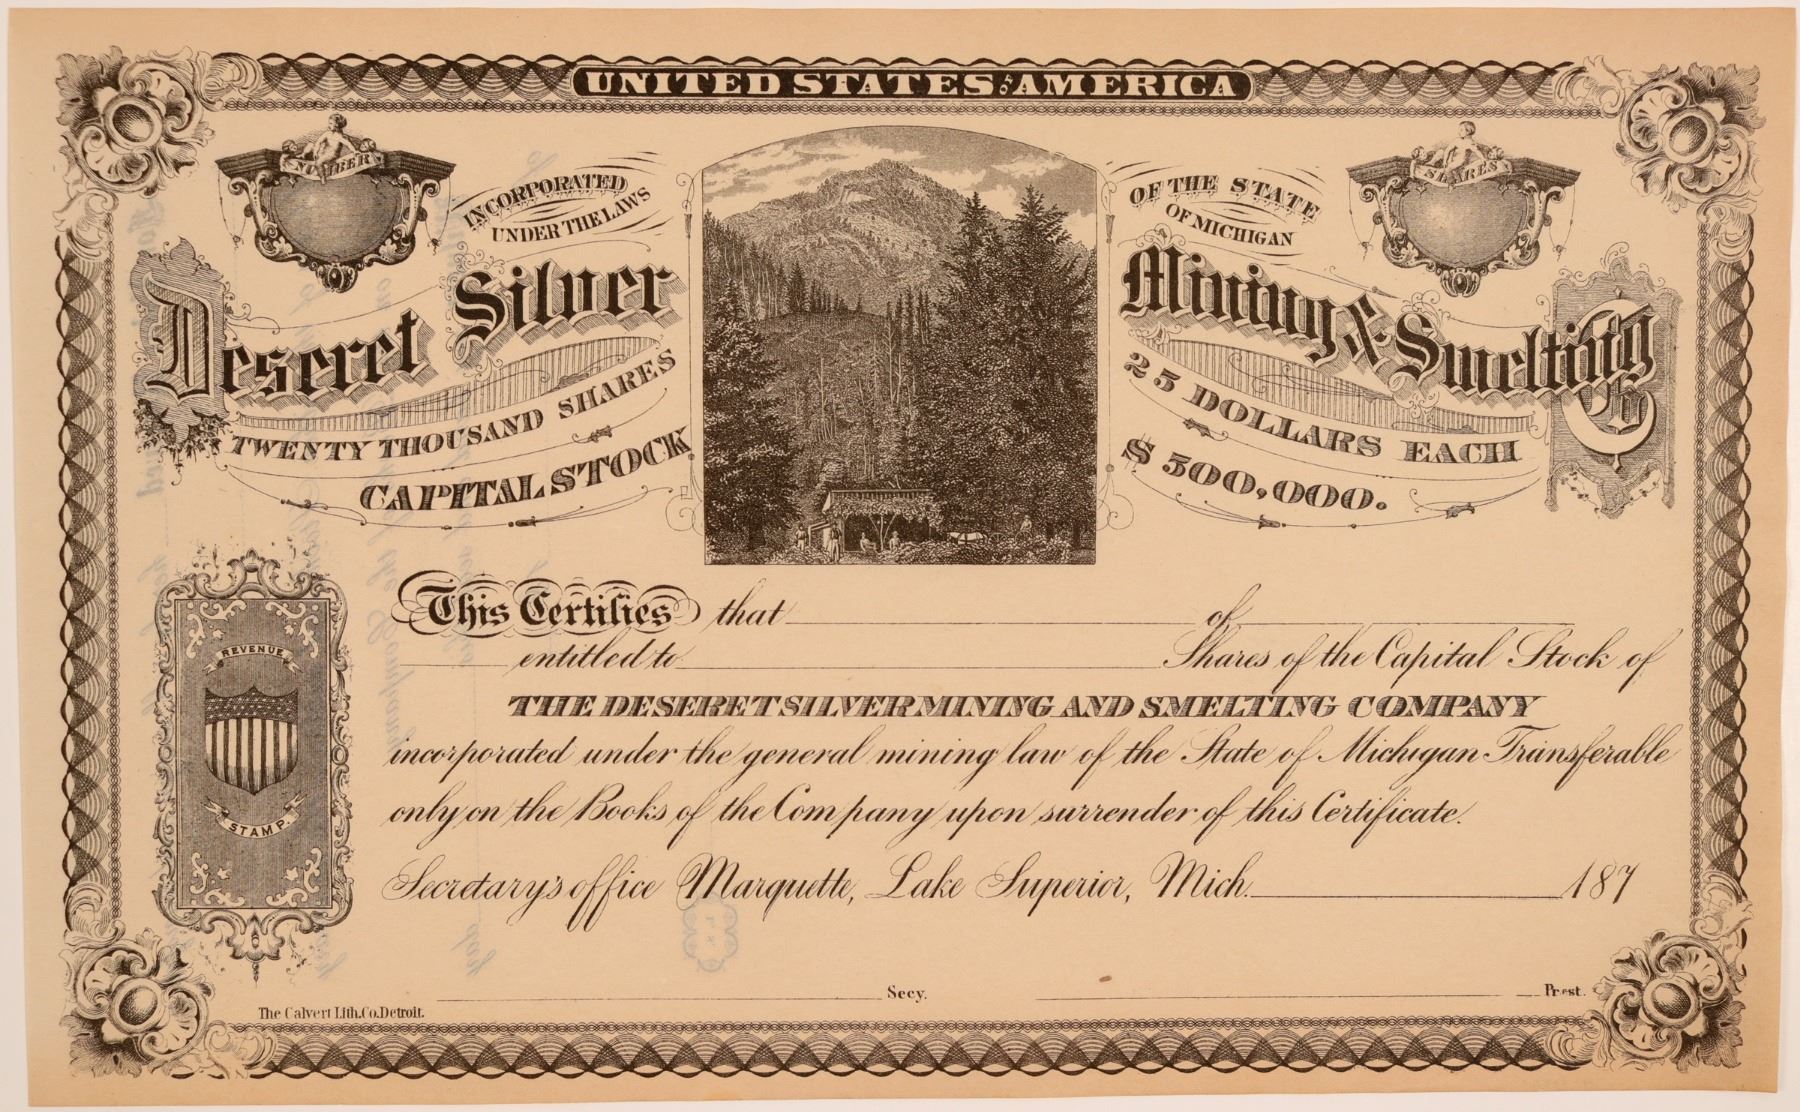 UNITED STATES OF AMERICA
NUMBER
SHARES
INCORPORATED
UNDER THE LAWS
OF THE STATE
OF MICHIGAN
Deseret Silver Mining & Smelting Co
TWENTY THOUSAND SHARES 25 DOLLARS EACH
CAPITAL STOCK $500,000.
REVENUE
STAMP.
This Certifies that of
entitled to Shares of the Capital Stock of
THE DESERET SILVER MINING AND SMELTING COMPANY
incorporated under the general mining law of the State of Michigan Transferable
only on the Books of the Company upon surrender of this Certificate.
Secretary's office Marquette, Lake Superior, Mich. 187
Secy. Prest.
The Calvert Lith. Co. Detroit.